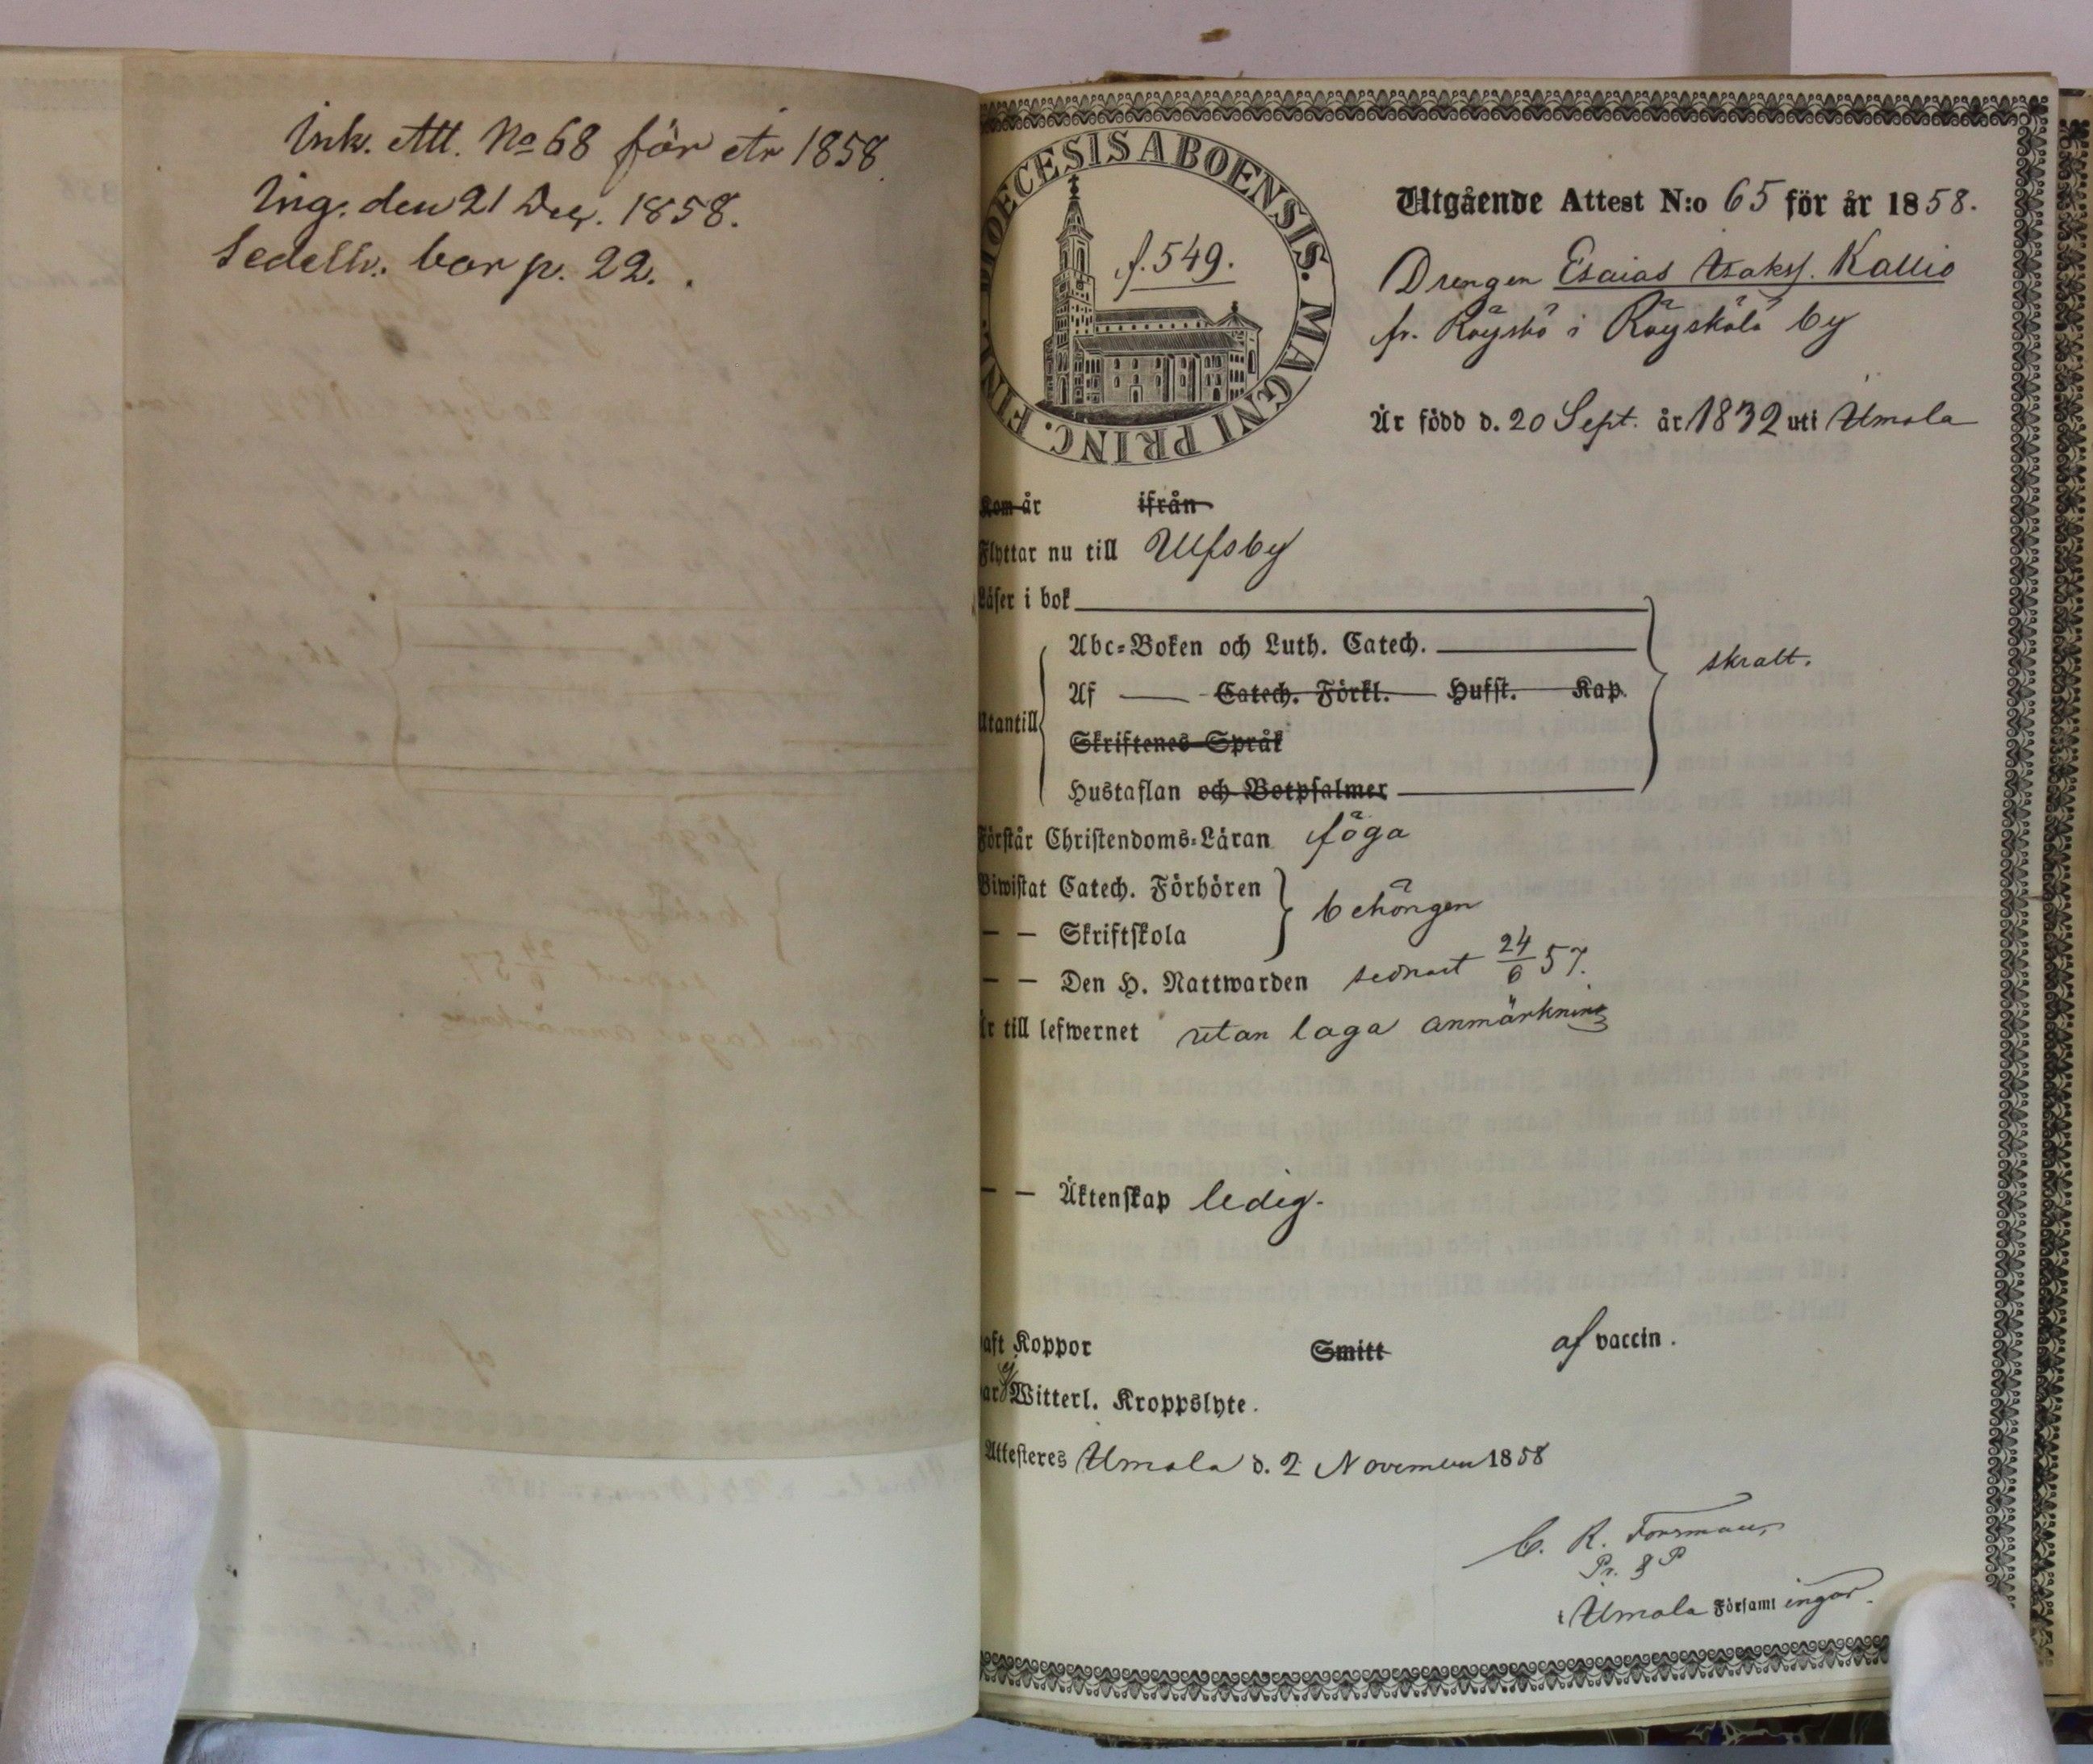 Ink. Att. No 68 för År 1858.
Ing. den 21 Dec. 1858.
Sedelh. bor p. 22.
DIOECESIS ABOENSIS. MAGNI PRINC. FINL.
f. 549.
Utgående Attest N:o 65 för år 1858.
Drengen Esaias Isakss. Kallio
fr. Röyskö i Röyskölä by
Är född d. 20 Sept. år 1832 uti Urnola
Kom år ifrån
Flyttar nu till Ulfsby
Läser i bok
Abc-Boken och Luth. Catech.
skralt.
Af Catech. Förkl. Hufst. Kap.
Utantill
Skriftenes Språk
Hustaflan och Botpsalmer
Förstår Christendoms-Läran föga
Biwistat Catech. Förhören
behörigen
— — Skriftskola
— — Den H. Nattwarden sednast 24/6 57.
Är till lefwernet utan laga anmärkning
— — Äktenskap ledig.
aft Koppor Smitt af vaccin.
ar ej Witterl. Kroppslyte.
Attesteres Urnola d. 2 November 1858
C. R. Forsman
Pr. & P
i Urnola Församlingar.